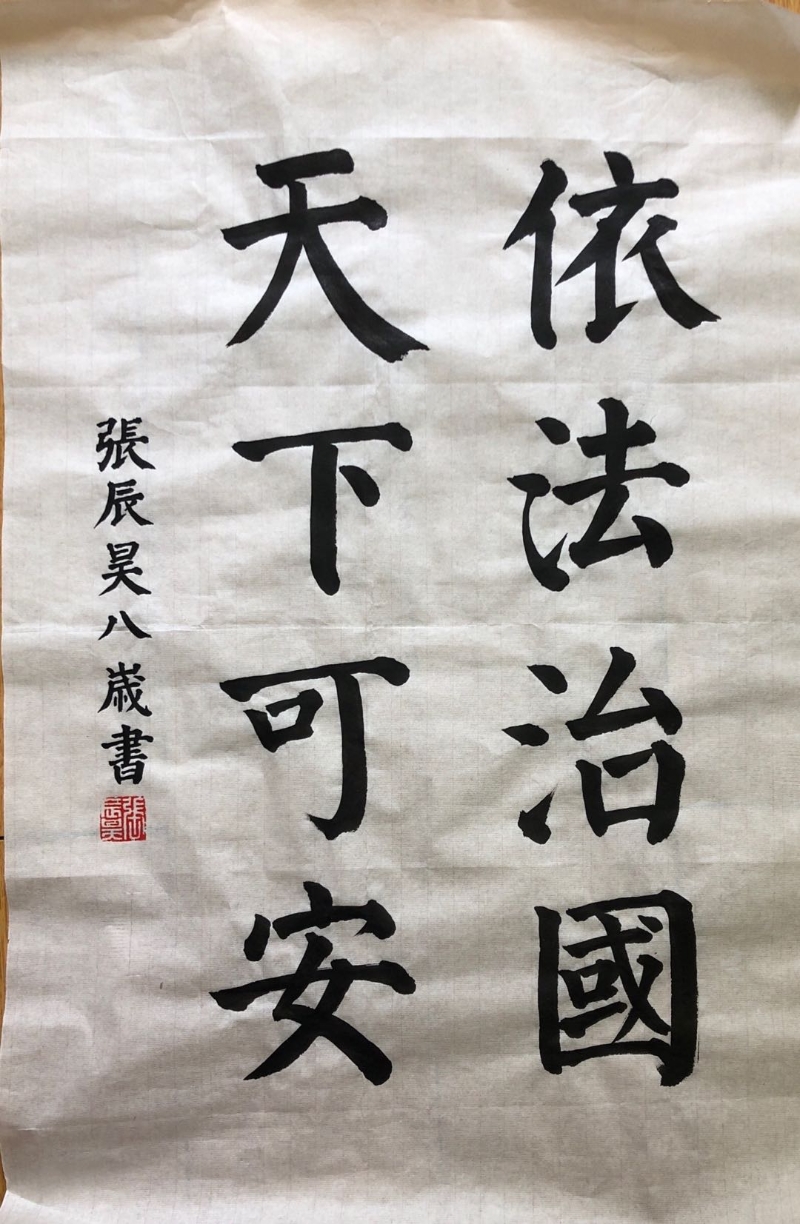 依法治國
天下可安
張辰昊八歲書